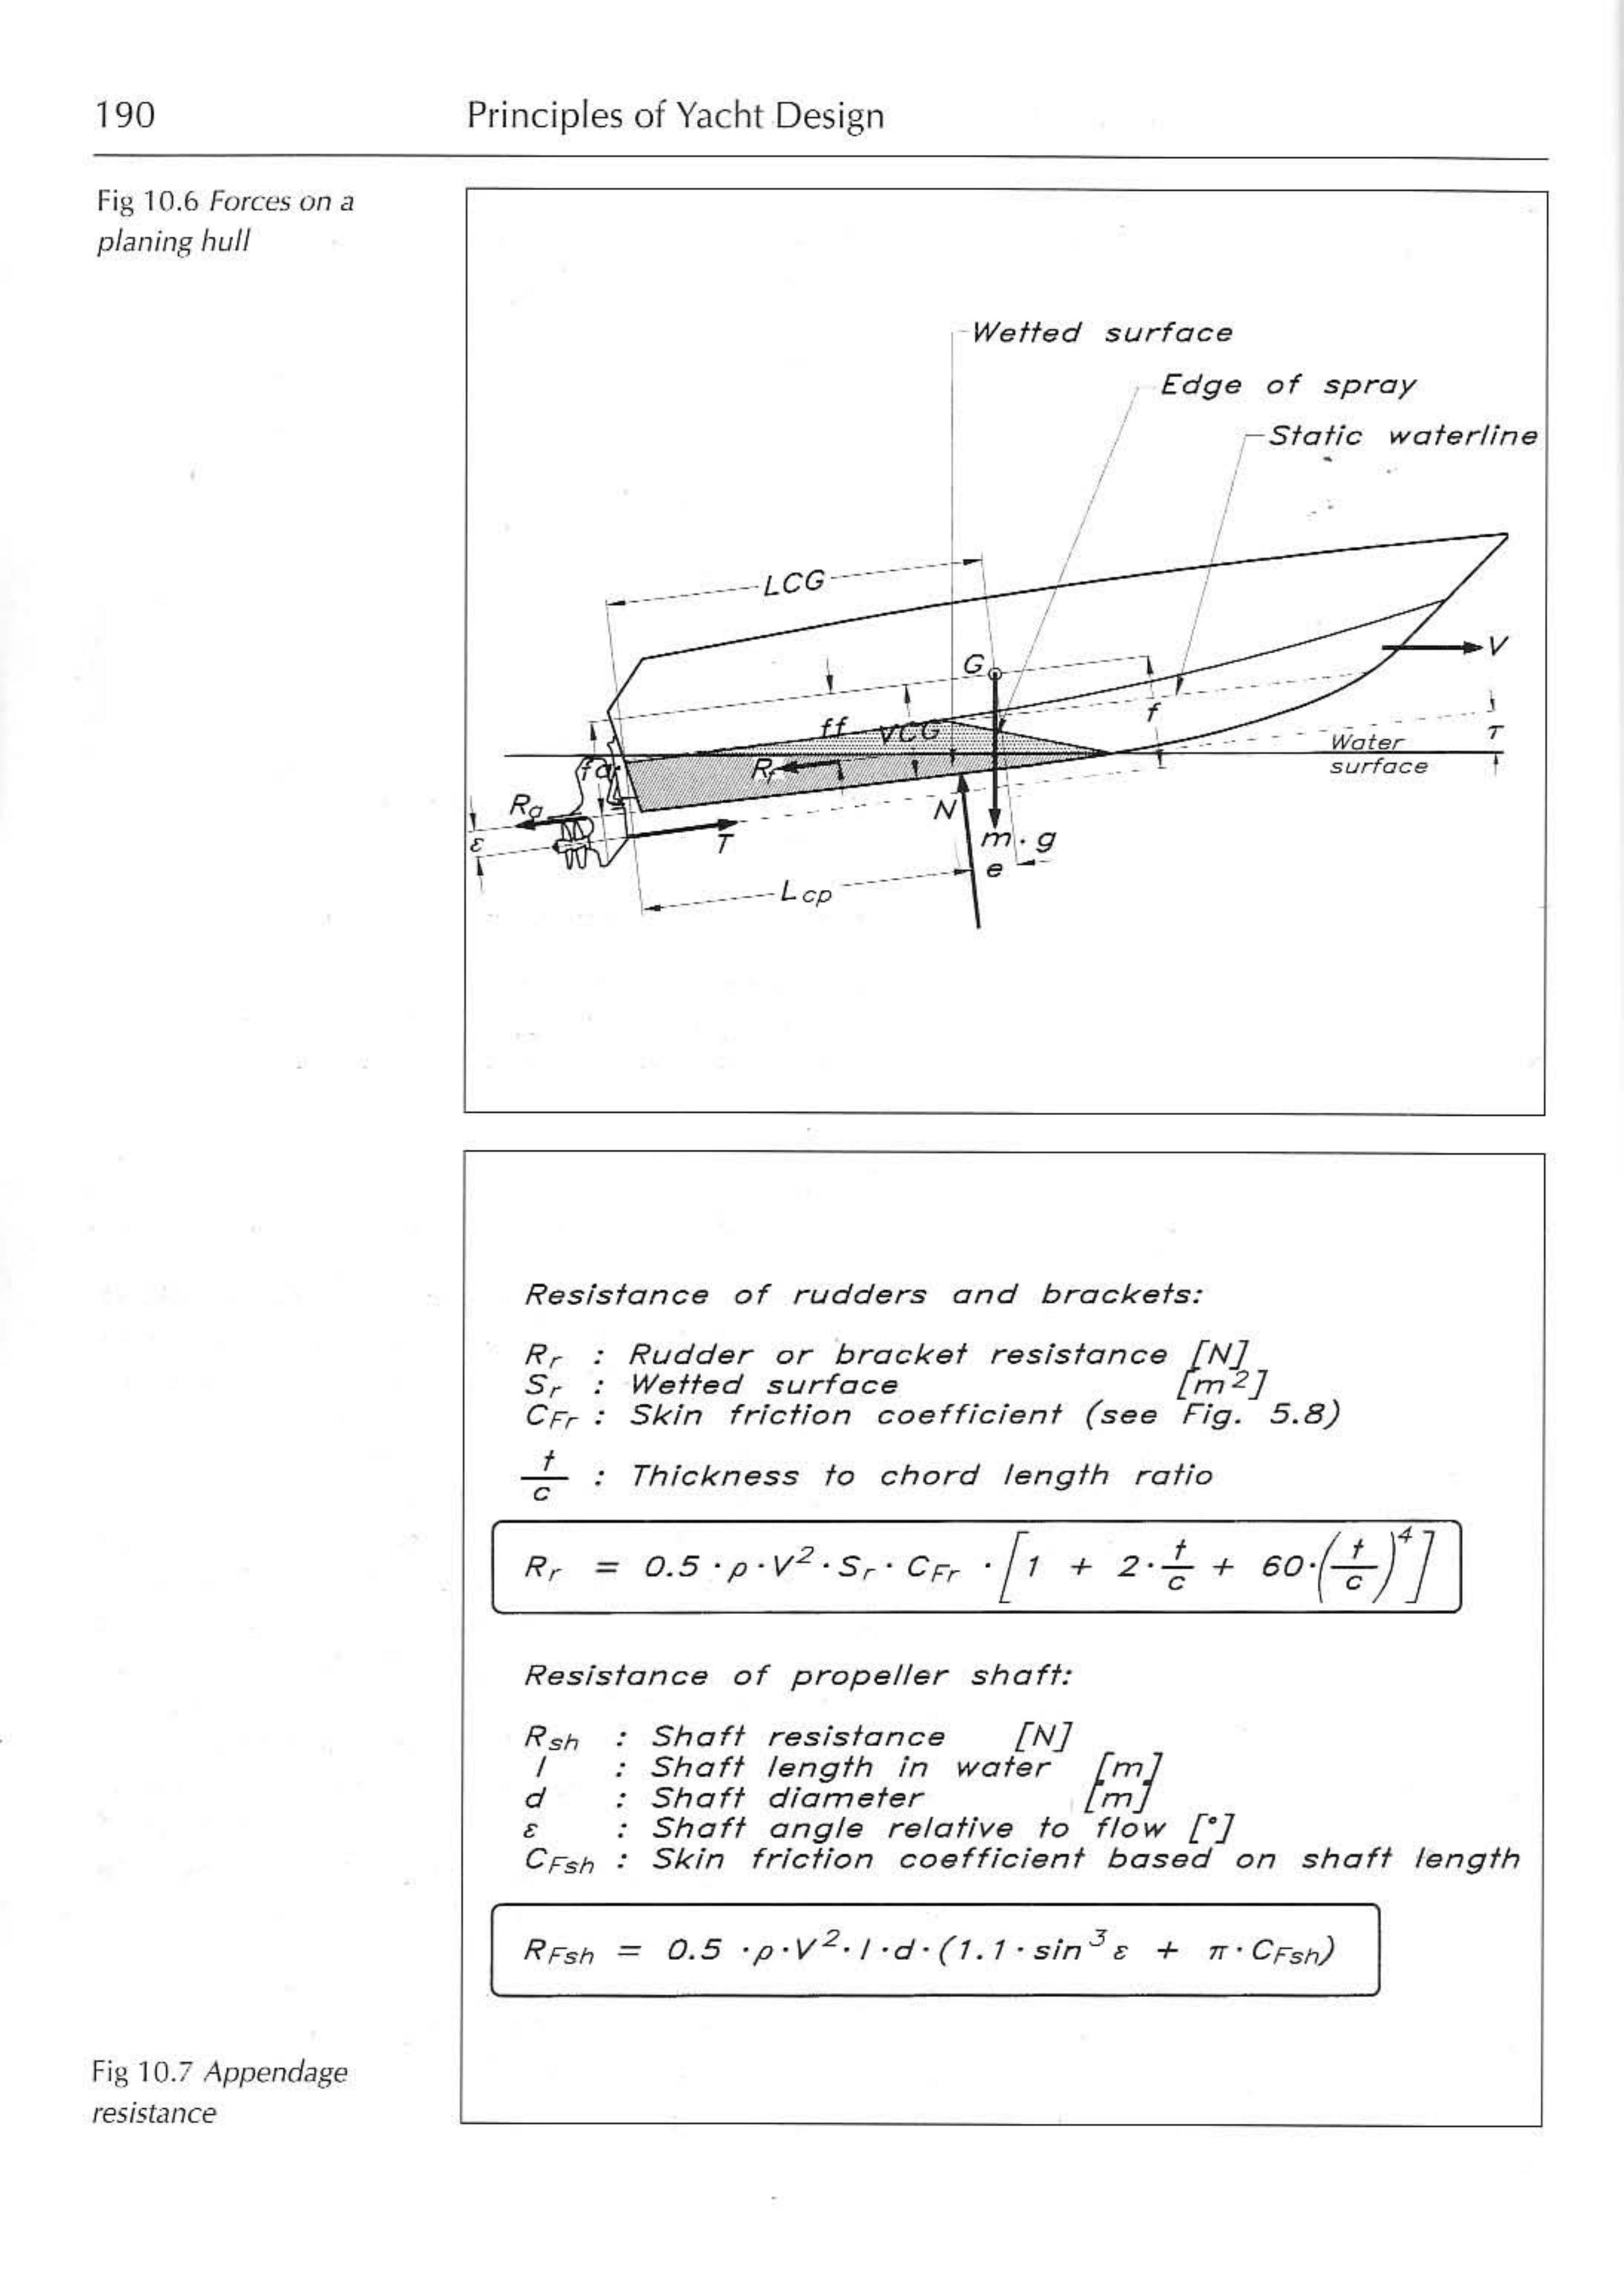 190
Principles of Yacht Design
Fig 10.6 Forces on a
planing hull
Wetted surface
Edge of spray
Static waterline
LCG
V
G
f
ff
VCG
τ
Water
surface
fa
Rf
Ra
N
T
m · g
ε
e
Lcp
Resistance of rudders and brackets:
Rr : Rudder or bracket resistance [N]
Sr : Wetted surface [m²]
CFr : Skin friction coefficient (see Fig. 5.8)
t/c : Thickness to chord length ratio
Rr = 0.5 · ρ · V² · Sr · CFr · [1 + 2 · t/c + 60 · (t/c)⁴]
Resistance of propeller shaft:
Rsh : Shaft resistance [N]
l : Shaft length in water [m]
d : Shaft diameter [m]
ε : Shaft angle relative to flow [°]
CFsh : Skin friction coefficient based on shaft length
RFsh = 0.5 · ρ · V² · l · d · (1.1 · sin³ ε + π · CFsh)
Fig 10.7 Appendage
resistance